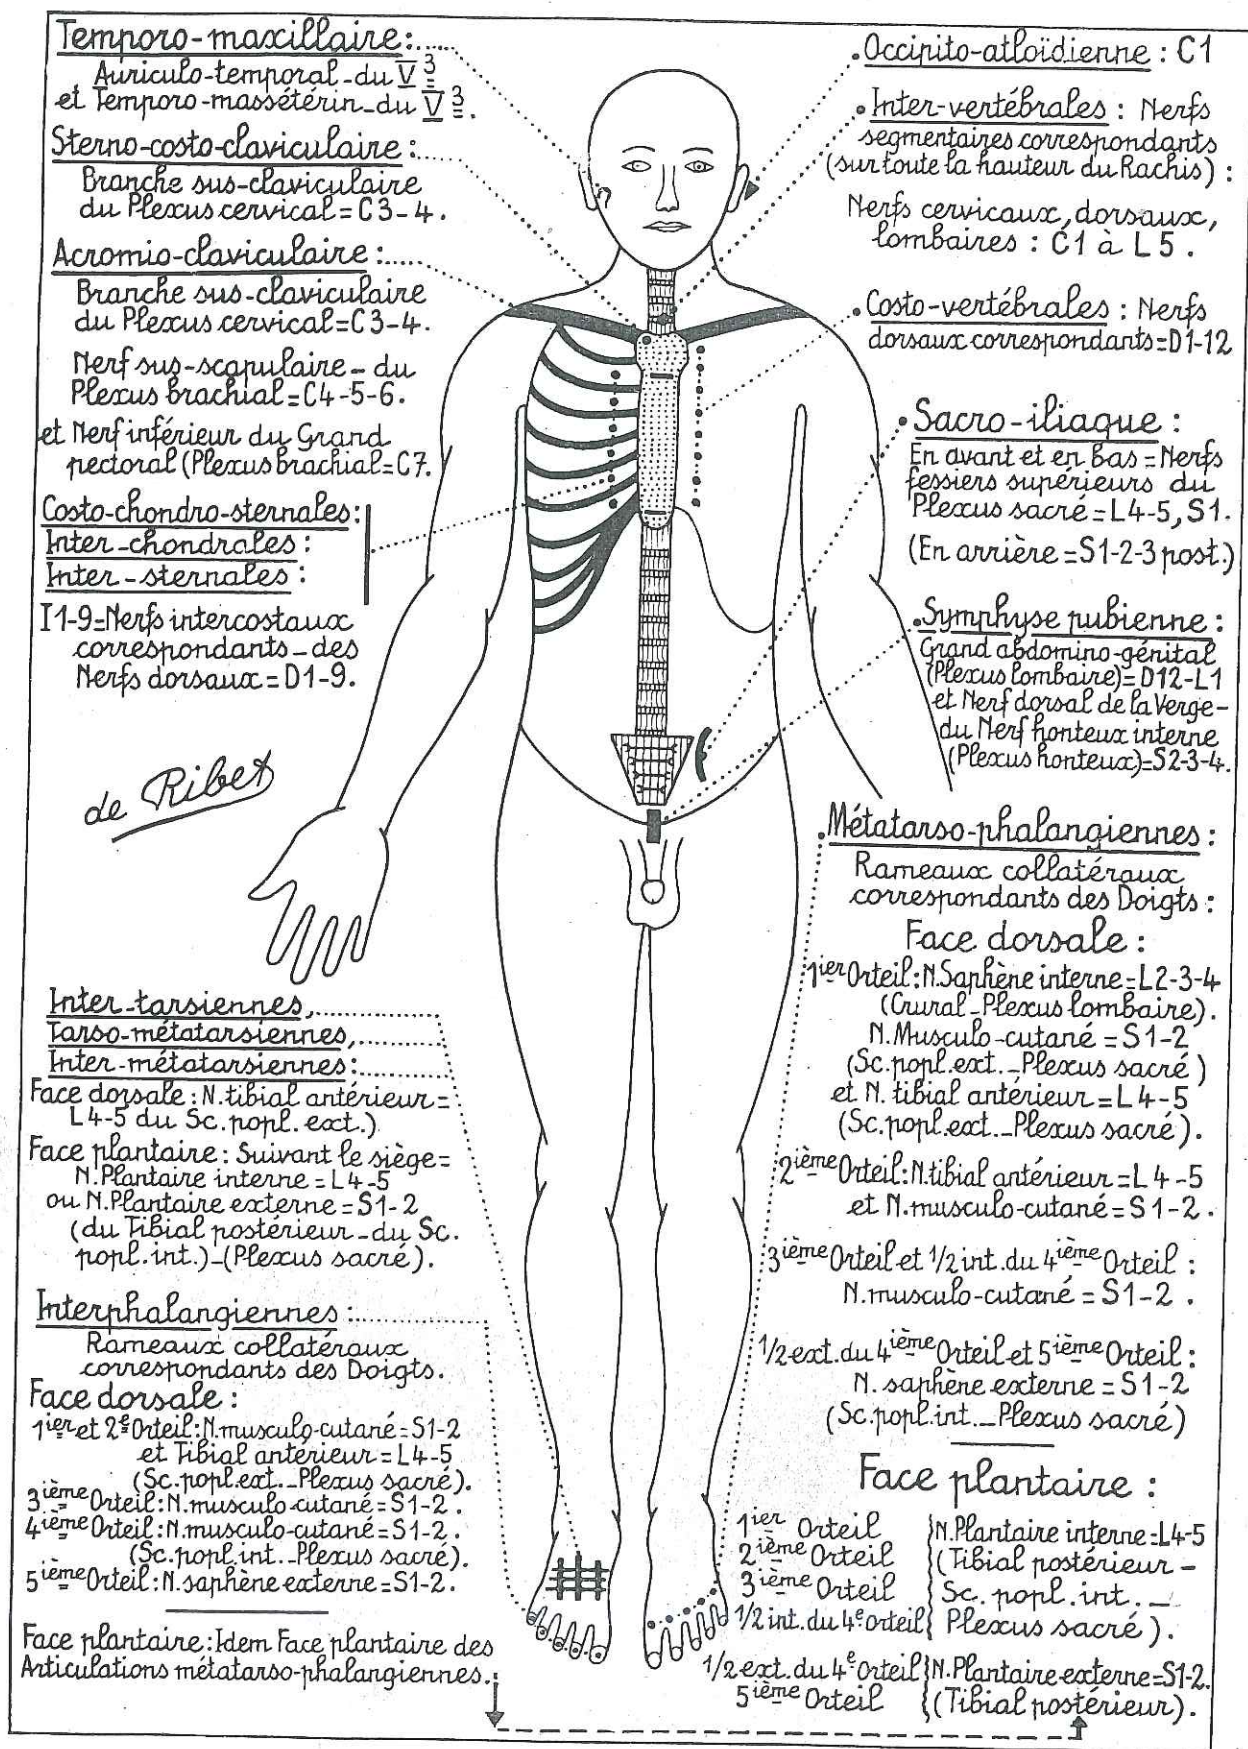 Temporo-maxillaire:
Auriculo-temporal-du V 3
et Temporo-massétérin-du V 3.
Sterno-costo-claviculaire:
Branche sus-claviculaire
du Plexus cervical=C3-4.
Acromio-claviculaire:
Branche sus-claviculaire
du Plexus cervical=C3-4.
Nerf sus-scapulaire-du
Plexus brachial=C4-5-6.
et Nerf inférieur du Grand
pectoral (Plexus brachial=C7.
Costo-chondro-sternales:
Inter-chondrales:
Inter-sternales:
I1-9=Nerfs intercostaux
correspondants-des
Nerfs dorsaux=D1-9.
de Ribet
Inter-tarsiennes,
Tarso-métatarsiennes,
Inter-métatarsiennes:
Face dorsale: N.tibial antérieur=
L4-5 du Sc.popl.ext.)
Face plantaire: Suivant le siège=
N.Plantaire interne=L4-5
ou N.Plantaire externe=S1-2
(du Tibial postérieur-du Sc.
popl.int.)-(Plexus sacré).
Interphalangiennes:
Rameaux collatéraux
correspondants des Doigts.
Face dorsale:
1ier et 2e Orteil: N.musculo-cutané=S1-2
et Tibial antérieur=L4-5
(Sc.popl.ext._Plexus sacré).
3ième Orteil: N.musculo-cutané=S1-2.
4ième Orteil: N.musculo-cutané=S1-2.
(Sc.popl.int._Plexus sacré).
5ième Orteil: N.saphène externe=S1-2.
Face plantaire: Idem Face plantaire des
Articulations métatarso-phalangiennes.
Occipito-atloïdienne: C1
Inter-vertébrales: Nerfs
segmentaires correspondants
(sur toute la hauteur du Rachis):
Nerfs cervicaux, dorsaux,
lombaires: C1 à L5.
Costo-vertébrales: Nerfs
dorsaux correspondants=D1-12
Sacro-iliaque:
En avant et en bas=Nerfs
fessiers supérieurs du
Plexus sacré=L4-5, S1.
(En arrière=S1-2-3 post.)
Symphyse pubienne:
Grand abdomino-génital
(Plexus lombaire)=D12-L1
et Nerf dorsal de la Verge-
du Nerf honteux interne
(Plexus honteux)=S2-3-4.
Métatarso-phalangiennes:
Rameaux collatéraux
correspondants des Doigts:
Face dorsale:
1ier Orteil: N.Saphène interne=L2-3-4
(Crural_Plexus lombaire).
N.Musculo-cutané=S1-2
(Sc.popl.ext._Plexus sacré)
et N. tibial antérieur=L4-5
(Sc.popl.ext._Plexus sacré).
2ième Orteil: N.tibial antérieur=L4-5
et N.musculo-cutané=S1-2.
3ième Orteil et 1/2 int.du 4ième Orteil:
N.musculo-cutané=S1-2.
1/2 ext.du 4ième Orteil et 5ième Orteil:
N. saphène externe=S1-2
(Sc.popl.int._Plexus sacré)
Face plantaire:
1ier Orteil } N.Plantaire interne=L4-5
2ième Orteil (Tibial postérieur-
3ième Orteil Sc. popl. int._
1/2 int.du 4e orteil { Plexus sacré).
1/2 ext.du 4e Orteil } N.Plantaire externe=S1-2.
5ième Orteil { (Tibial postérieur).